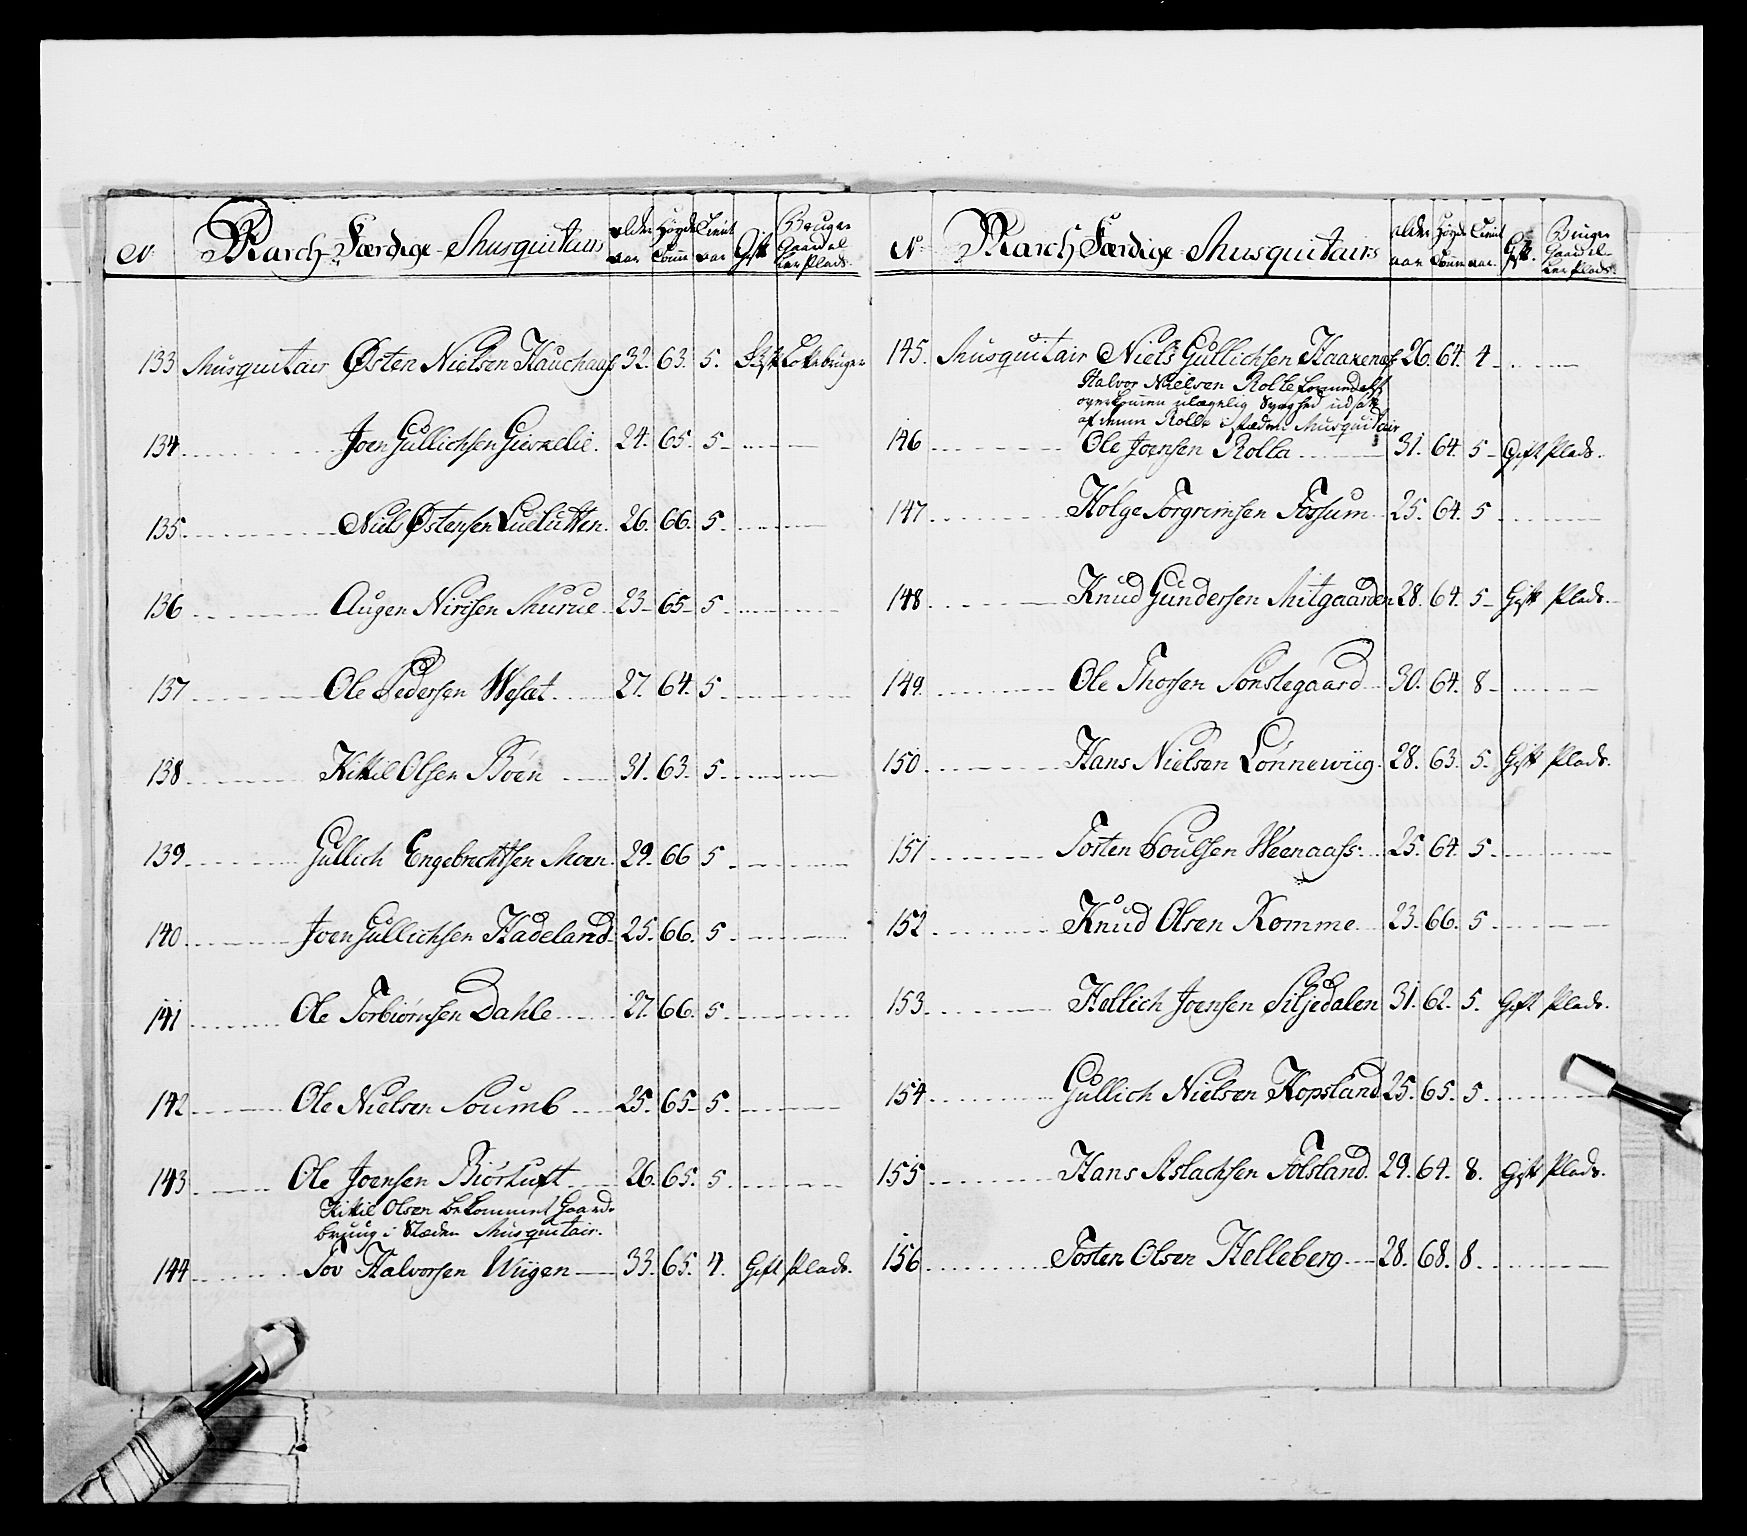 No March Færdige Musquitairs alder aar Høyde Tomr tient aar Gift Bruger Gaard el ler Plads
133 Musquitair Østen Nielsen Hauchaas 32. 63. 5. Gift
134 Joen Gullichsen 24. 65. 5
135 Niels Østensen 26. 66. 5
136 Augen Nirisen Murue 23 65 5
137 Ole Pedersen Wefæt 27. 64. 5
138 Kittil Olsen Bøen 31. 63. 5
139 Gullich Engebrechtsen Moen 29. 66 5
140 Joen Gullichsen Hadeland 25. 66. 5
141 Ole Torbiørnsen Dahle 27. 66. 5
142 Ole Nielsen Soumb 25. 65 5
143 Ole Joensen Biørtuft 26. 65. 5
Kittil Olsen bekommet Gaard
brug i Stæden Musquitair.
144 Tov Halvorsen Wiigen 33. 65. 4. Gift Plads.
No March Færdige Musquitairs alder aar Høyde Tomr tient aar Gift. Bruger Gaard el ler Plads
145. Musquitair Niels Gullichsen Haarenes 26. 64. 4
Halvor Nielsen Rolle formedelst
overkommen ulægelig Svaghed udsatt
af Rolle i stæden Musquitair
146 Ole Joensen Rolla 31. 64. 5 Gift Plads.
147 Holge Torgrimsen Fossum 25. 64. 5
148 Knud Gundersen Mitgaarden 28. 64. 5 Gift Plads.
149 Ole Thorsen Sønstegaard 30. 64. 8
150 Hans Nielsen Lønnewiig 28. 63. 5. Gift Plads.
151 Tosten Poulsen Weenaass 25. 64. 5
152 Knud Olsen Romme 23. 66. 5
153 Hellich Joensen Siljedalen 31. 62. 5. Gift Plads.
154 Gullich Nielsen Hopsland 25. 65. 5
155 Hans Aslachsen Folsland 29. 64. 8. Gift Plads.
156 Tosten Olsen Helleberg 28. 68. 8